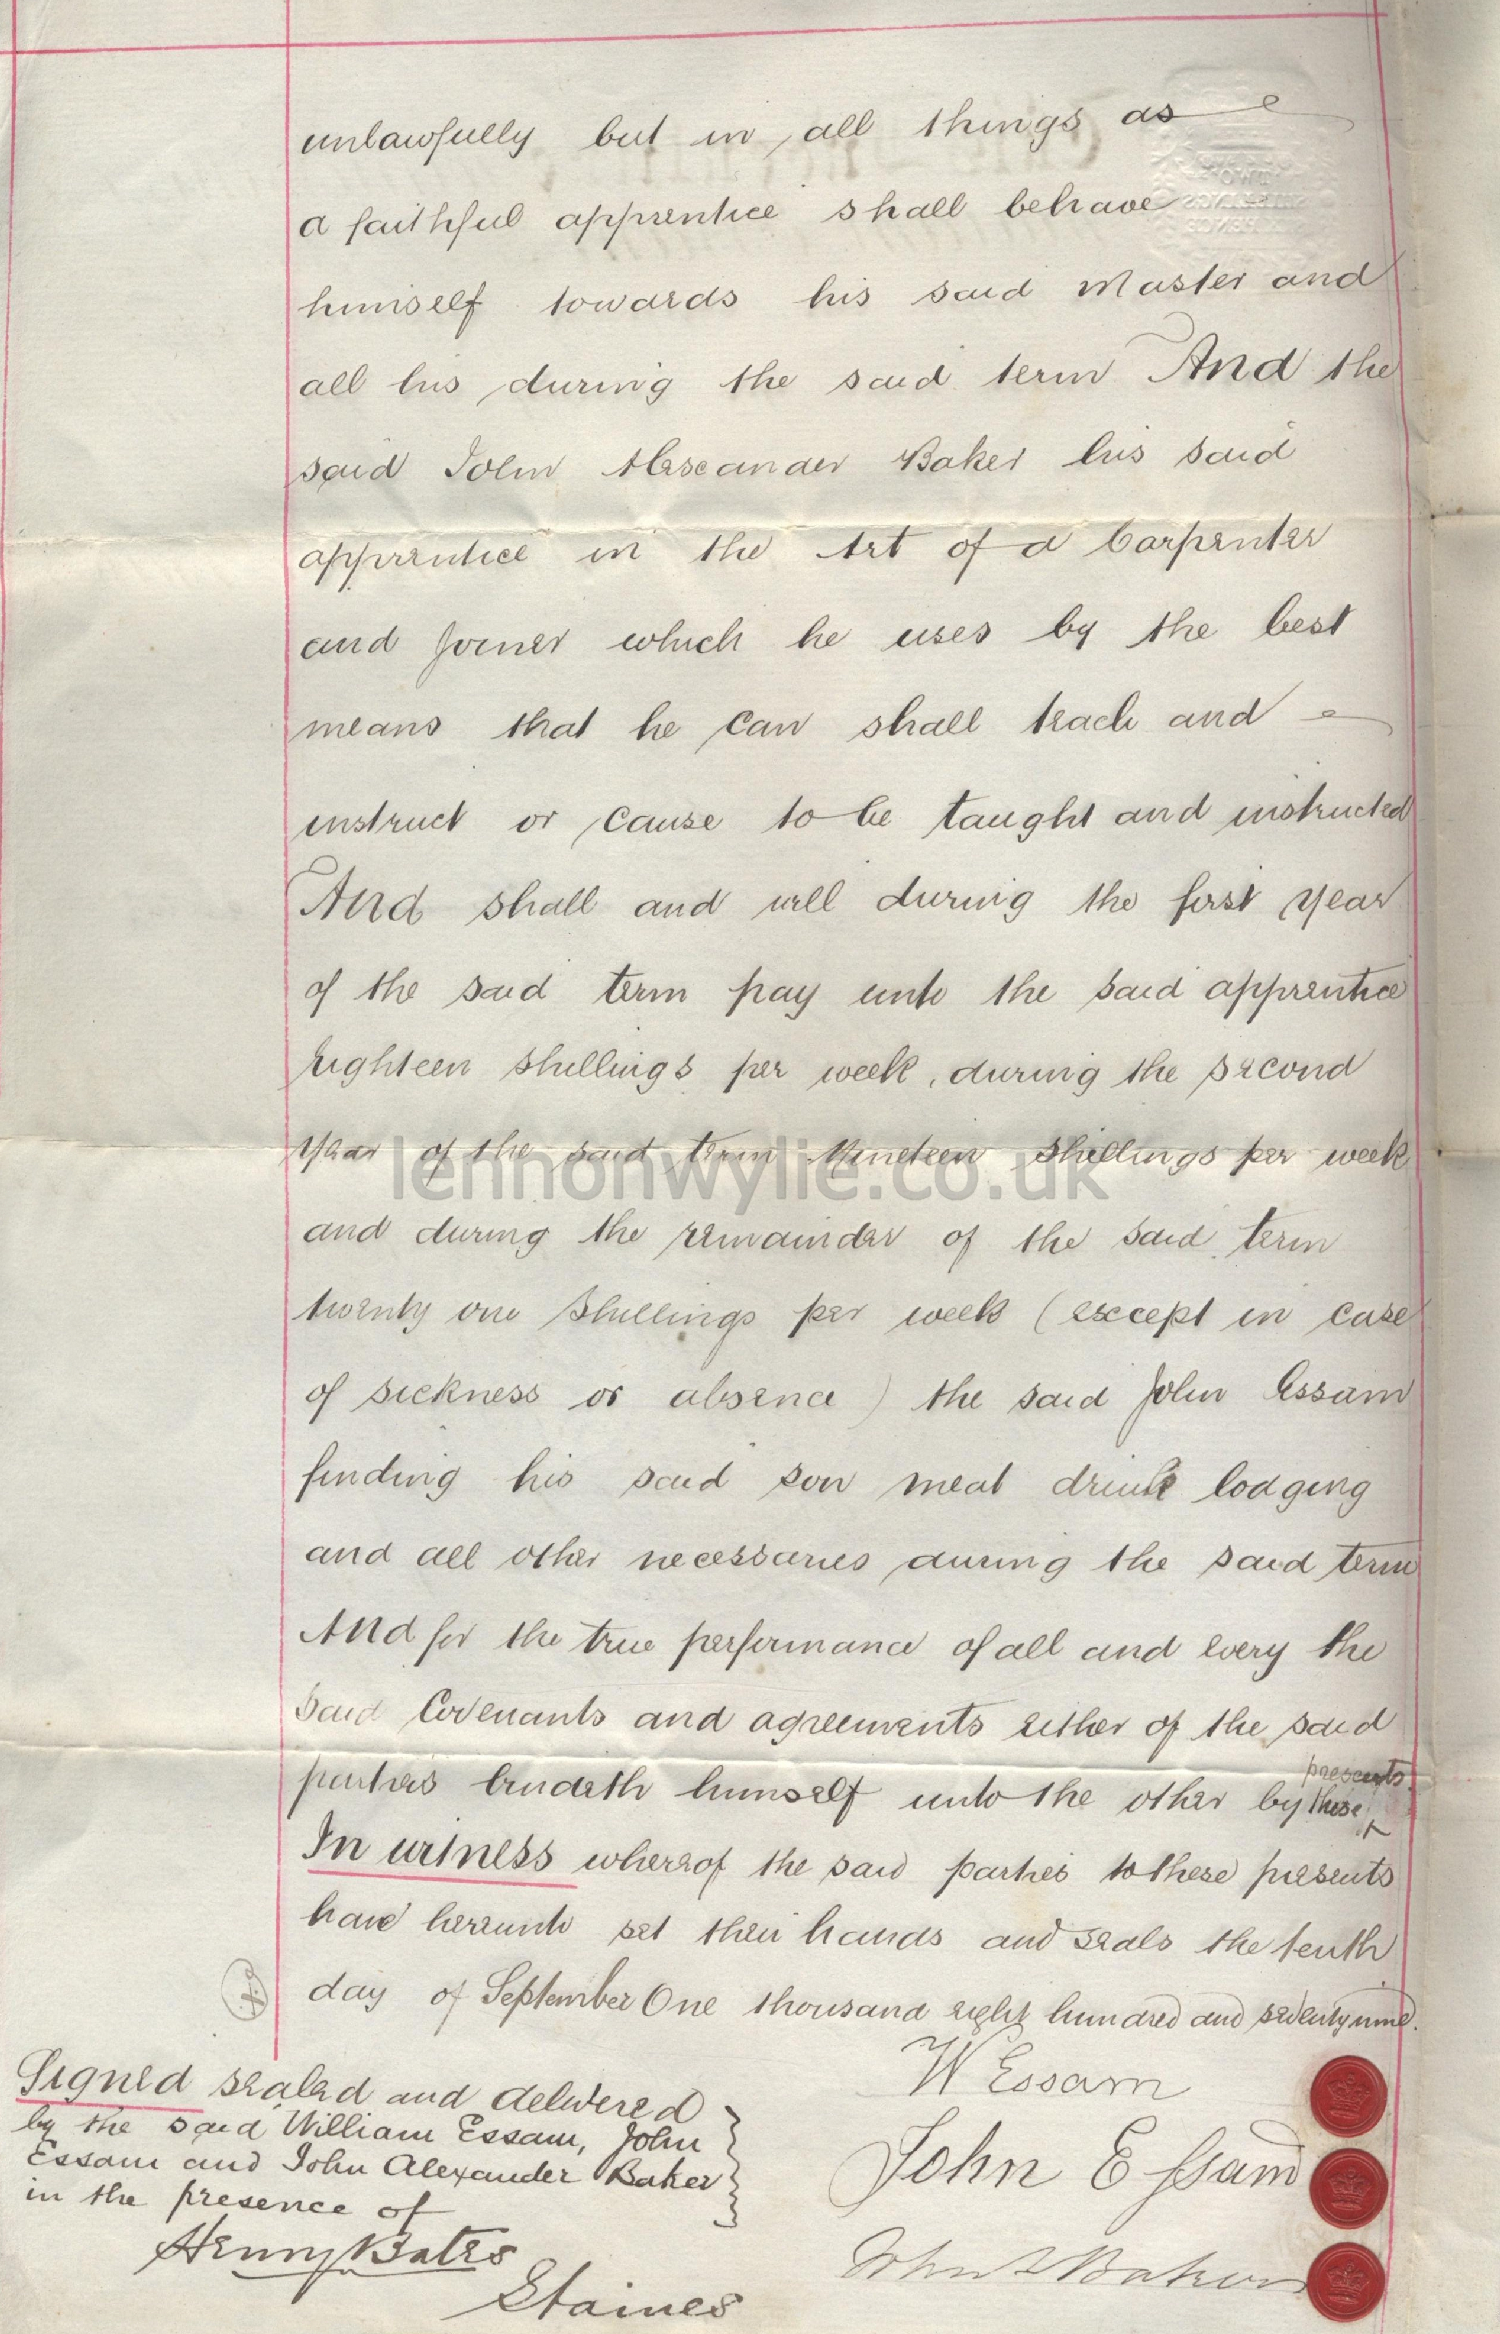 unlawfully but in all things as
a faithful apprentice shall behave
himself towards his said Master and
all his during the said term And the
said John Alexander Baker his said
apprentice in the Art of a Carpenter
and Joiner which he uses by the best
means that he can shall teach and
instruct or cause to be taught and instructed
And shall and will during the first year
of the said term pay unto the said apprentice
eighteen shillings per week, during the second
year of the said term Nineteen Shillings per week
lennonwylie.co.uk
and during the remainder of the said term
twenty one Shillings per week (except in case
of sickness or absence) the said John Essam
finding his said son meat drink lodging
and all other necessaries during the said term
And for the true performance of all and every the
said Covenants and agreements either of the said
parties bindeth himself unto the other by these presents
In witness whereof the said parties to these presents
have hereunto set their hands and seals the tenth
day of September One thousand eight hundred and seventy nine.
Signed sealed and delivered
by the said William Essam, John
Essam and John Alexander Baker
in the presence of
Henry Bates
Staines
W Essam
John Essam
John A Baker